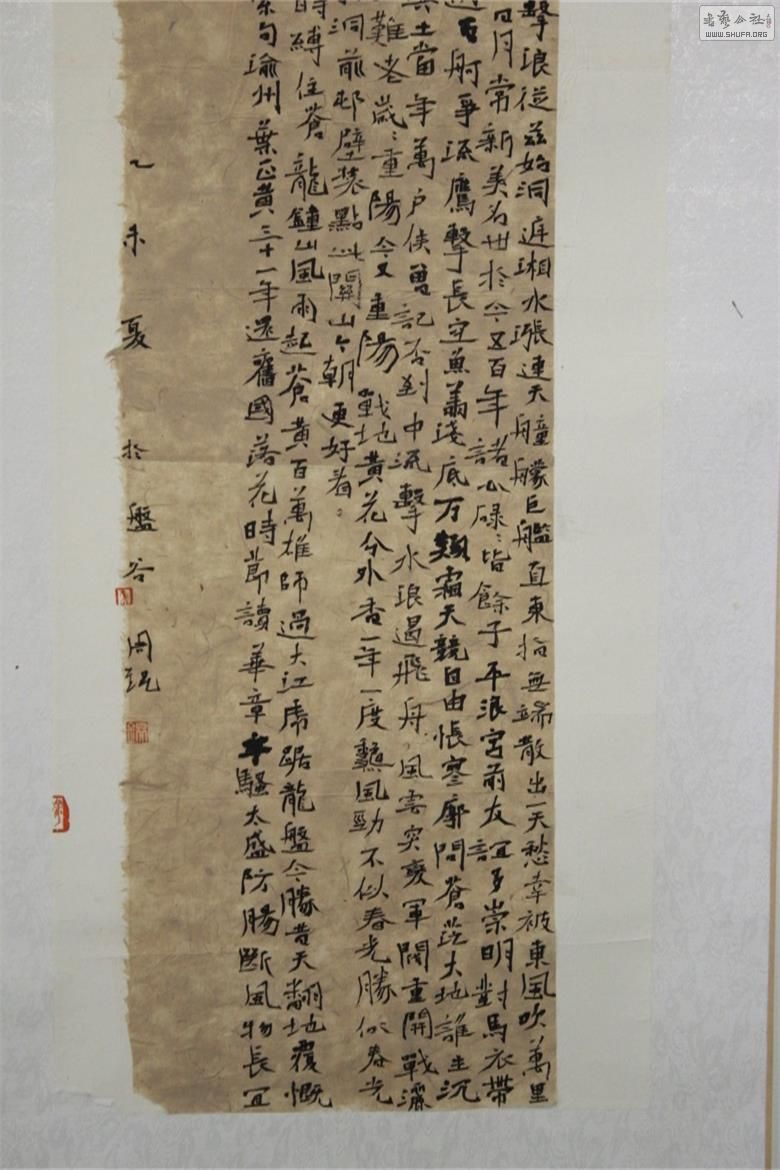 擊浪從茲始洞庭湘水漲連天艟艨巨艦直東指無端散出一天愁幸被東風吹萬里
日月常新美名世於今五百年諸公碌〻皆餘子平浪宮前友誼多崇明對馬衣帶
百舸爭流鷹擊長空魚翔淺底万類霜天競自由悵寥廓問蒼茫大地誰主沉
土當年萬戶侯曾記否到中流擊水浪遏飛舟風雲突變軍閥重開戰灑
難老歲〻重陽今又重陽戰地黃花分外香一年一度龝風勁不似春光勝似春光
洞前邨壁裝點此關山今朝更好看
時縛住蒼龍鍾山風雨起蒼黃百萬雄師過大江虎踞龍盤今勝昔天翻地覆慨
索句渝州葉正黃三十一年還舊國落花時節讀華章牢騷太盛防腸斷風物長宜
乙未夏於盤谷周
書藝公社
WWW.SHUFA.ORG